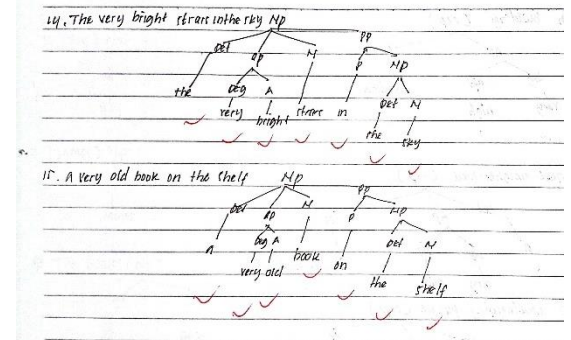 14. The very bright strars in the sky NP
PP
Det AP N P NP
the Deg A Det N
very bright strars in
the sky
15. A very old book on the shelf NP
PP
Det AP N P NP
Deg A Det N
a very old book on
the shelf